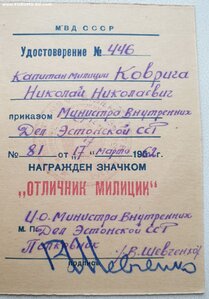 МВД СССР
Удостоверение № 446
Капитан милиции Коврига
Николай Николаевич
приказом Министра Внутренних
Дел Эстонской ССР
№ 81 от "17" марта 196
НАГРАЖДЕН ЗНАЧКОМ
„ОТЛИЧНИК МИЛИЦИИ"
И.О. Министра Внутренних
М. П. Дел Эстонской ССР
Полковник /В. Шевченко/
подпись